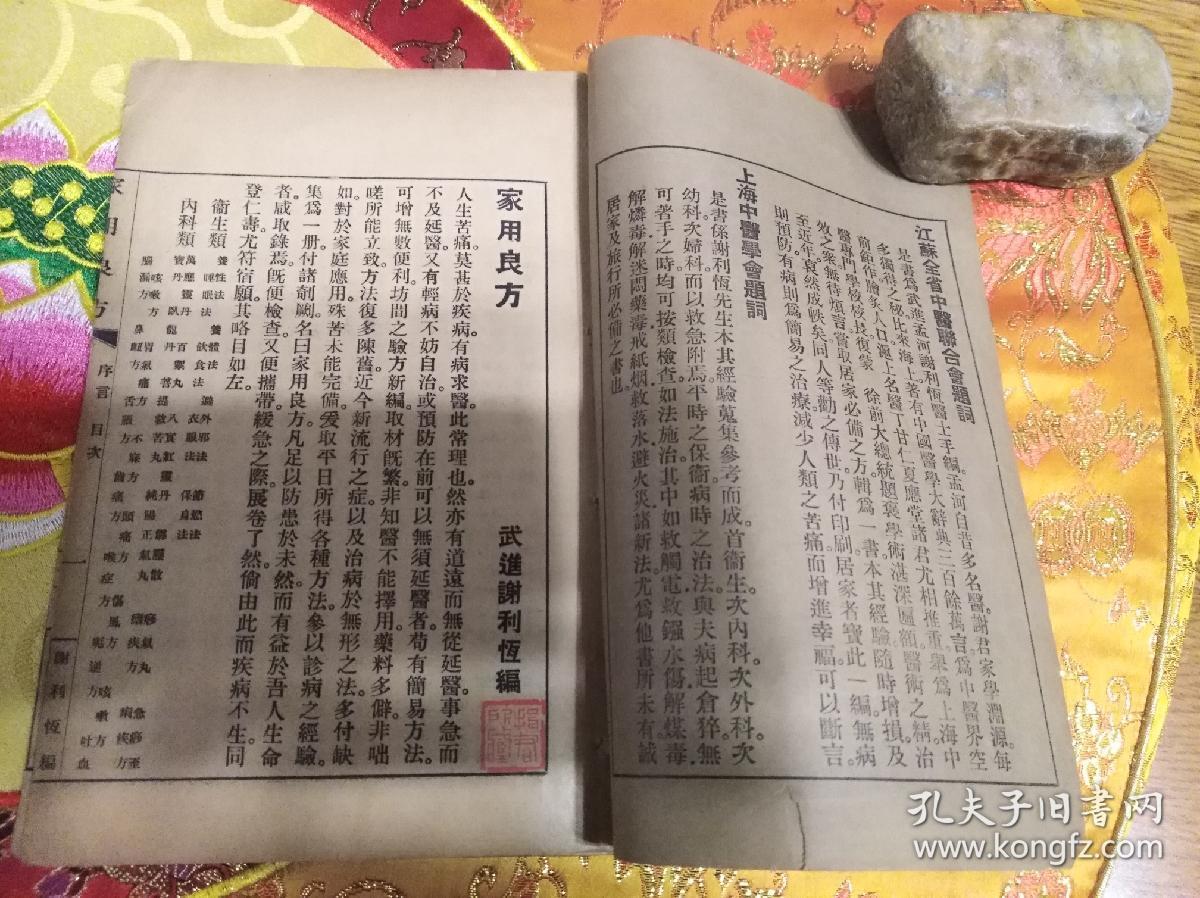 江蘇全省中醫聯合會題詞
是書爲武進孟河謝利恆醫士手編。孟河自昔多名醫。謝君家學淵源。每
多獨得之秘。比來海上。著有中國醫學大辭典三百餘萬言。爲中醫界空
前鉅作。膾炙人口。滬上名醫丁甘仁夏應堂諸君尤相推重。舉爲上海中
醫專門學校校長。復蒙 徐前大總統題褒學術湛深匾額。醫術之精。治
效之衆。無待煩言。嘗取居家必備之方。輯爲一書。本其經驗。隨時增損。及
至近年。裒然成帙矣。同人等勸之傳世。乃付印刷。居家者寶此一編。無病
則預防。有病則爲簡易之治療。減少人類之苦痛。而增進幸福。可以斷言。
上海中醫學會題詞
是書係謝利恆先生本其經驗。蒐集參考而成。首衞生。次內科。次外科。次
幼科。次婦科。而以救急附焉。平時之保衞。病時之治法。與夫病起倉猝。無
可著手之時。均可按類檢查。如法施治。其中如救觸電。救鏹水傷。解煤毒。
解燐毒。解迷悶藥毒。戒紙烟。救落水。避火災諸新法。尤爲他書所未有。誠
居家及旅行所必備之書也。
家用良方
武進謝利恆編
人生苦痛。莫甚於疾病。有病求醫。此常理也。然亦有道遠而無從延醫。事急而
不及延醫。又有輕病不妨自治。或預防在前。可以無須延醫者。苟有簡易方法。
可增無數便利。坊間之驗方新編。取材旣繁。非知醫不能擇用。藥料多僻。非咄
嗟所能立致。方法復多陳舊。近今新流行之症。以及治病於無形之法。多付缺
如。對於家庭應用。殊苦未能完備。爰取平日所得各種方法。參以診病之經驗。
集爲一册。付諸剞劂。名曰家用良方。凡足以防患於未然。而有益於吾人生命
者。咸取錄焉。旣便檢查。又便攜帶。緩急之際。展卷了然。倘由此而疾病不生。同
登仁壽。尤符宿願。其略目如左。
衞生類
內科類
家用良方 序言 目次 一 謝利恆編
孔夫子旧书网
www.kongfz.com